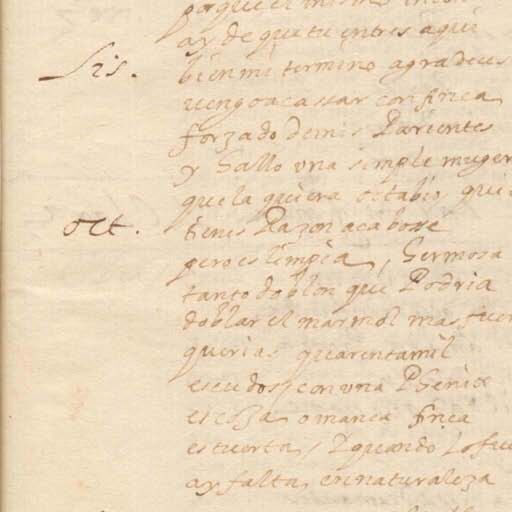 porque el mismo incon
ay de que tu entres aqui
Lis. bien mi termino agradeces
vengo a cassar con finea
forzado de mis Parientes
y hallo vna simple muger
que la quiera octabio, quie
oct. tienes Razon acabose
pero es limpia, hermosa
tanto doblon que Podria
doblar el marmol mas fuer
querias quarenta mil
escudos, con vna Phenix
es coja o manca finea
es tuerta, y quando lo fue
ay falta en naturaleza